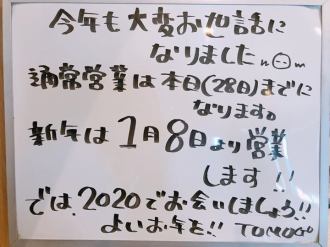 今年も大変お世話に
なりましたm(_ _)m
通常営業は本日(28日)までに
なります。
新年は1月8日より営業
します!!
では、2020でお会いしましょう!!
よいお年を!! TOMOGO